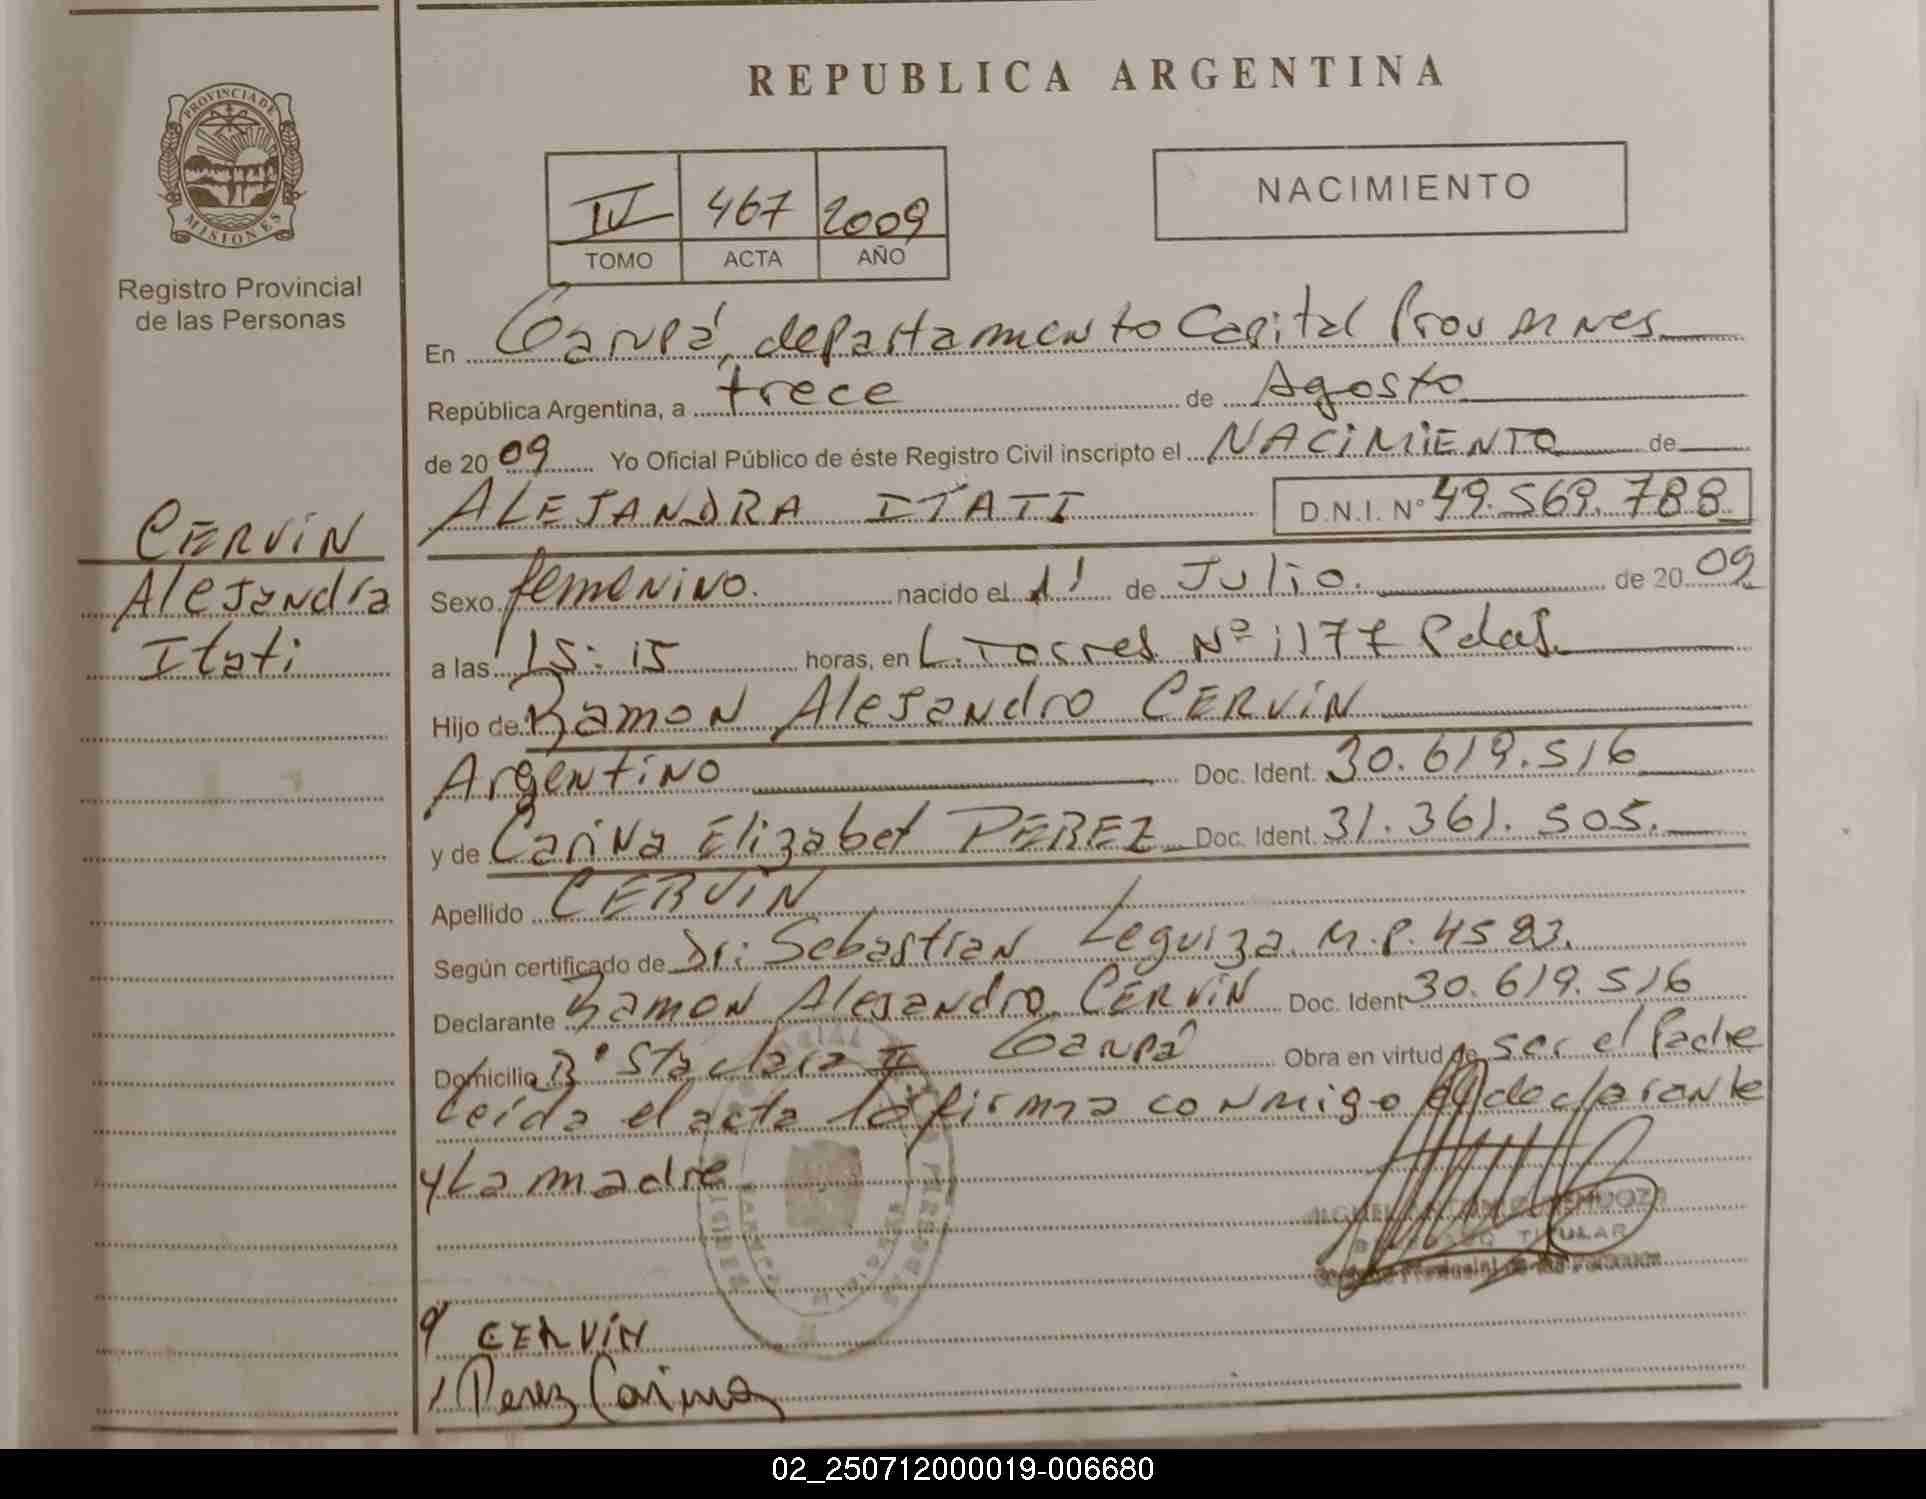 REPUBLICA ARGENTINA
PROVINCIA DE
MISIONES
Registro Provincial
de las Personas
NACIMIENTO
IV 467 2009
TOMO ACTA AÑO
En Garupá, departamento Capital Prov Mnes
República Argentina, a trece de Agosto
de 2009 Yo Oficial Público de éste Registro Civil inscripto el NACIMIENTO de
ALEJANDRA ITATI D.N.I. Nº 49.569.788
CERVIN
Alejandra
Itati
Sexo femenino. nacido el 11 de Julio. de 2009
a las 15:15 horas, en L. Torres Nº 1177 Pdas.
Hijo de Ramon Alejandro CERVIN
Argentino Doc. Ident. 30.619.516
y de Carina Elizabet PEREZ Doc. Ident. 31.361.505.
Apellido CERVIN
Según certificado de Dr: Sebastian Leguiza M.P. 4583.
Declarante Ramon Alejandro CERVIN Doc. Ident 30.619.516
Domicilio Bº Sta clara II Garupá Obra en virtud de ser el Padre
Leída el acta la firma conmigo el declarante
y La madre
TITULAR
CERVIN
Perez Carina
02_250712000019-006680